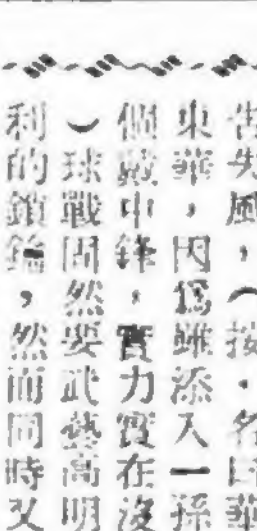 告失風，（按・名曰華
東華，因爲雖添入一孫
個敵中鋒，實力實在沒
）球戰固然要武藝高明
利的鎖鑰，然而同時又